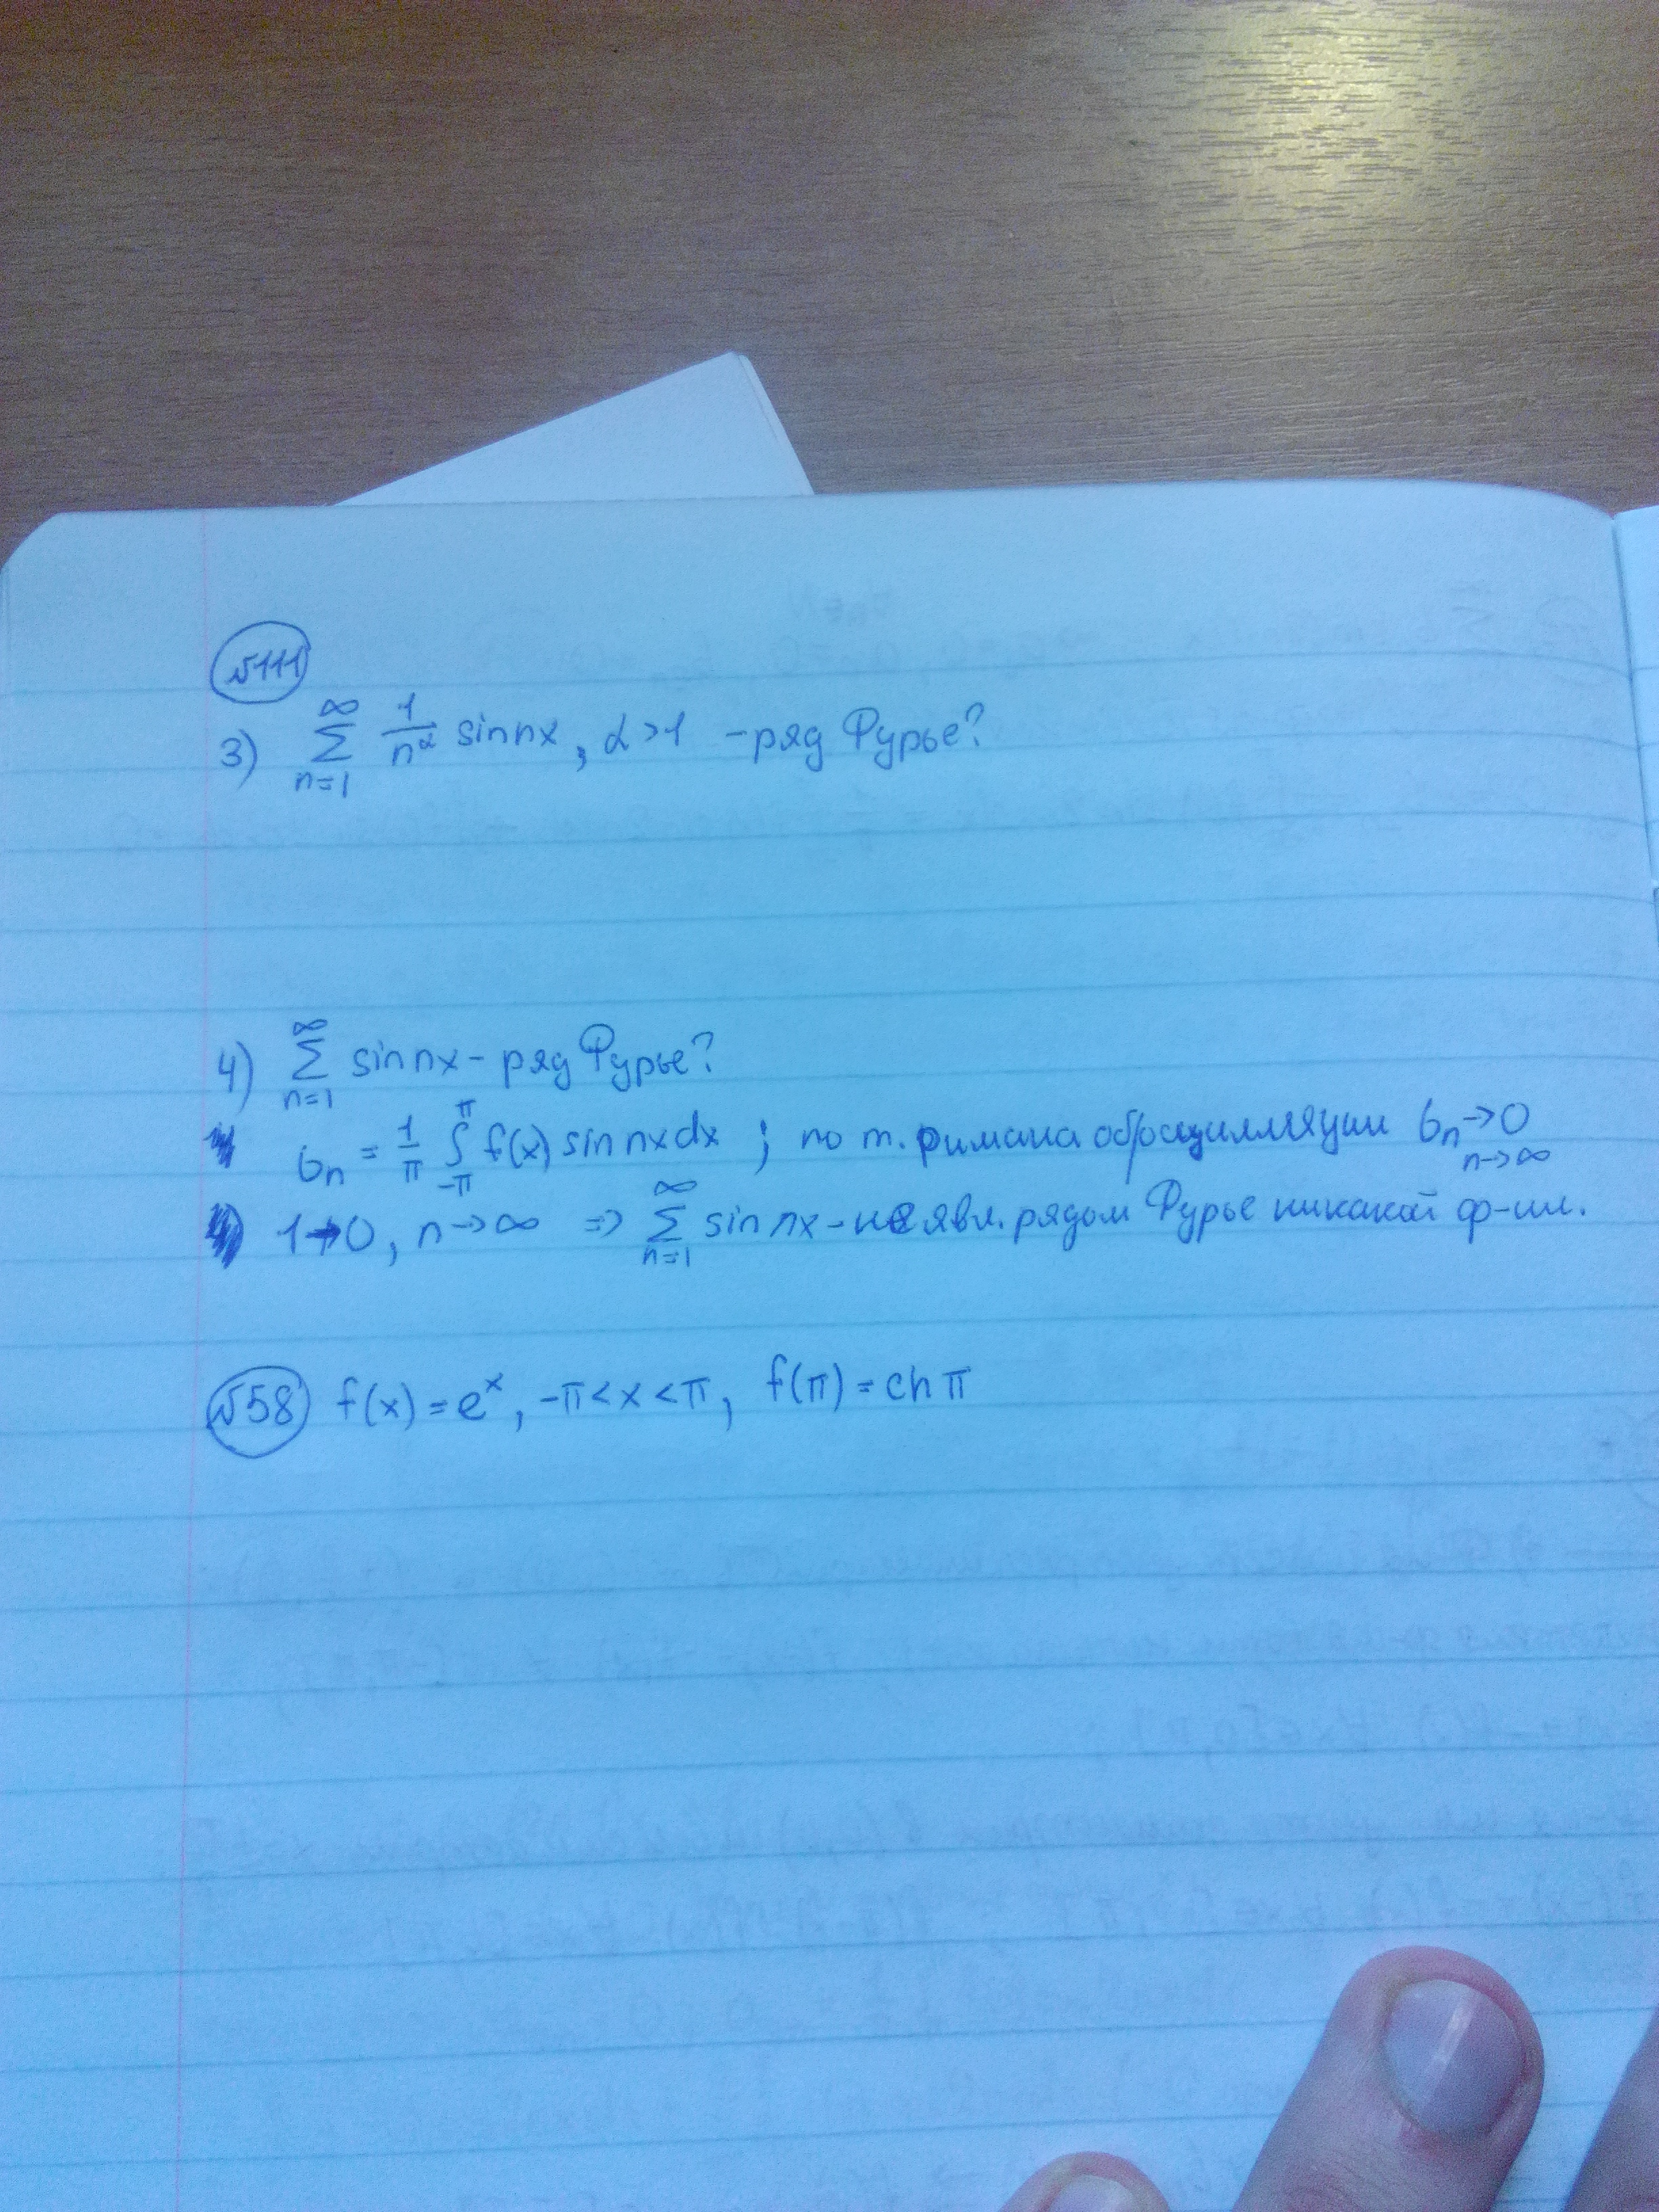 №111
3) ∑_{n=1}^{∞} 1/n^α sin nx, α>1 - ряд Фурье?
4) ∑_{n=1}^{∞} sin nx - ряд Фурье?
b_n = 1/π ∫_{-π}^{π} f(x) sin nx dx ; по т. Римана об осцилляции b_n → 0 n→∞
1↛0, n→∞ ⇒ ∑_{n=1}^{∞} sin nx - не явл. рядом Фурье никакой ф-ии.
№58 f(x) = e^x, -π<x<π, f(π) = ch π